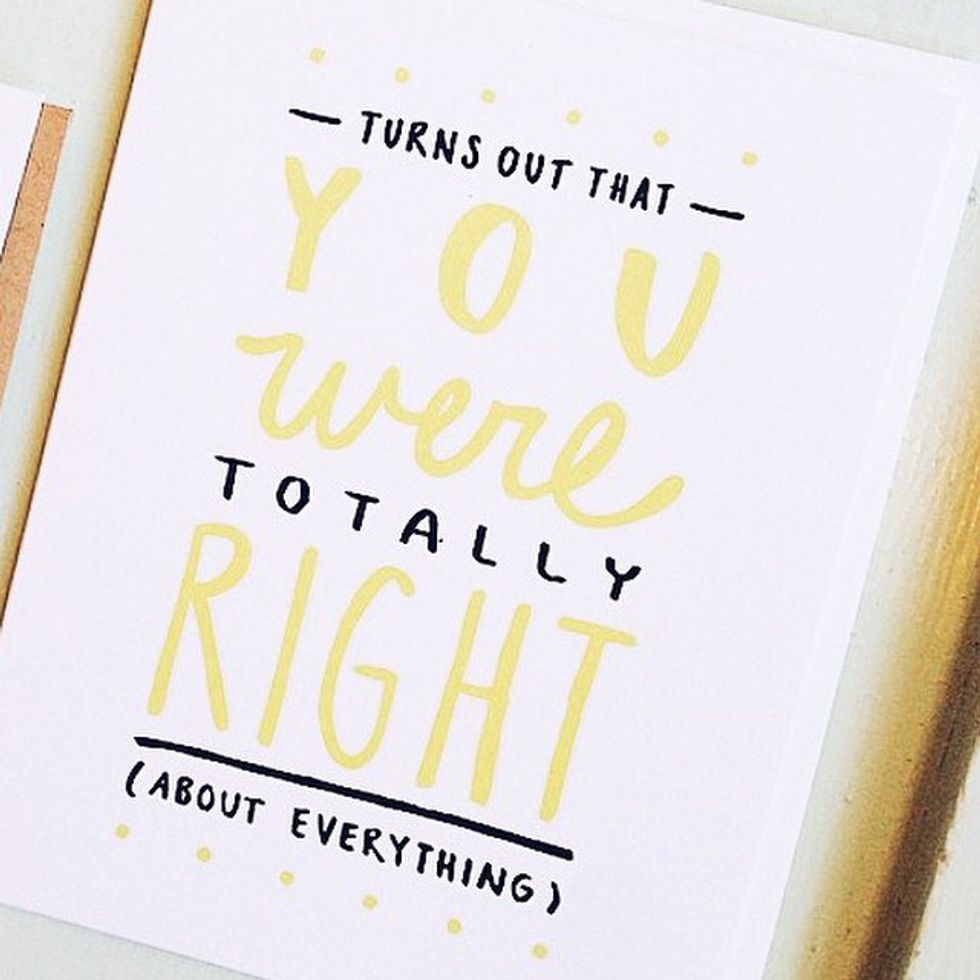 — TURNS OUT THAT —
YOU
were
TOTALLY
RIGHT
(ABOUT EVERYTHING)